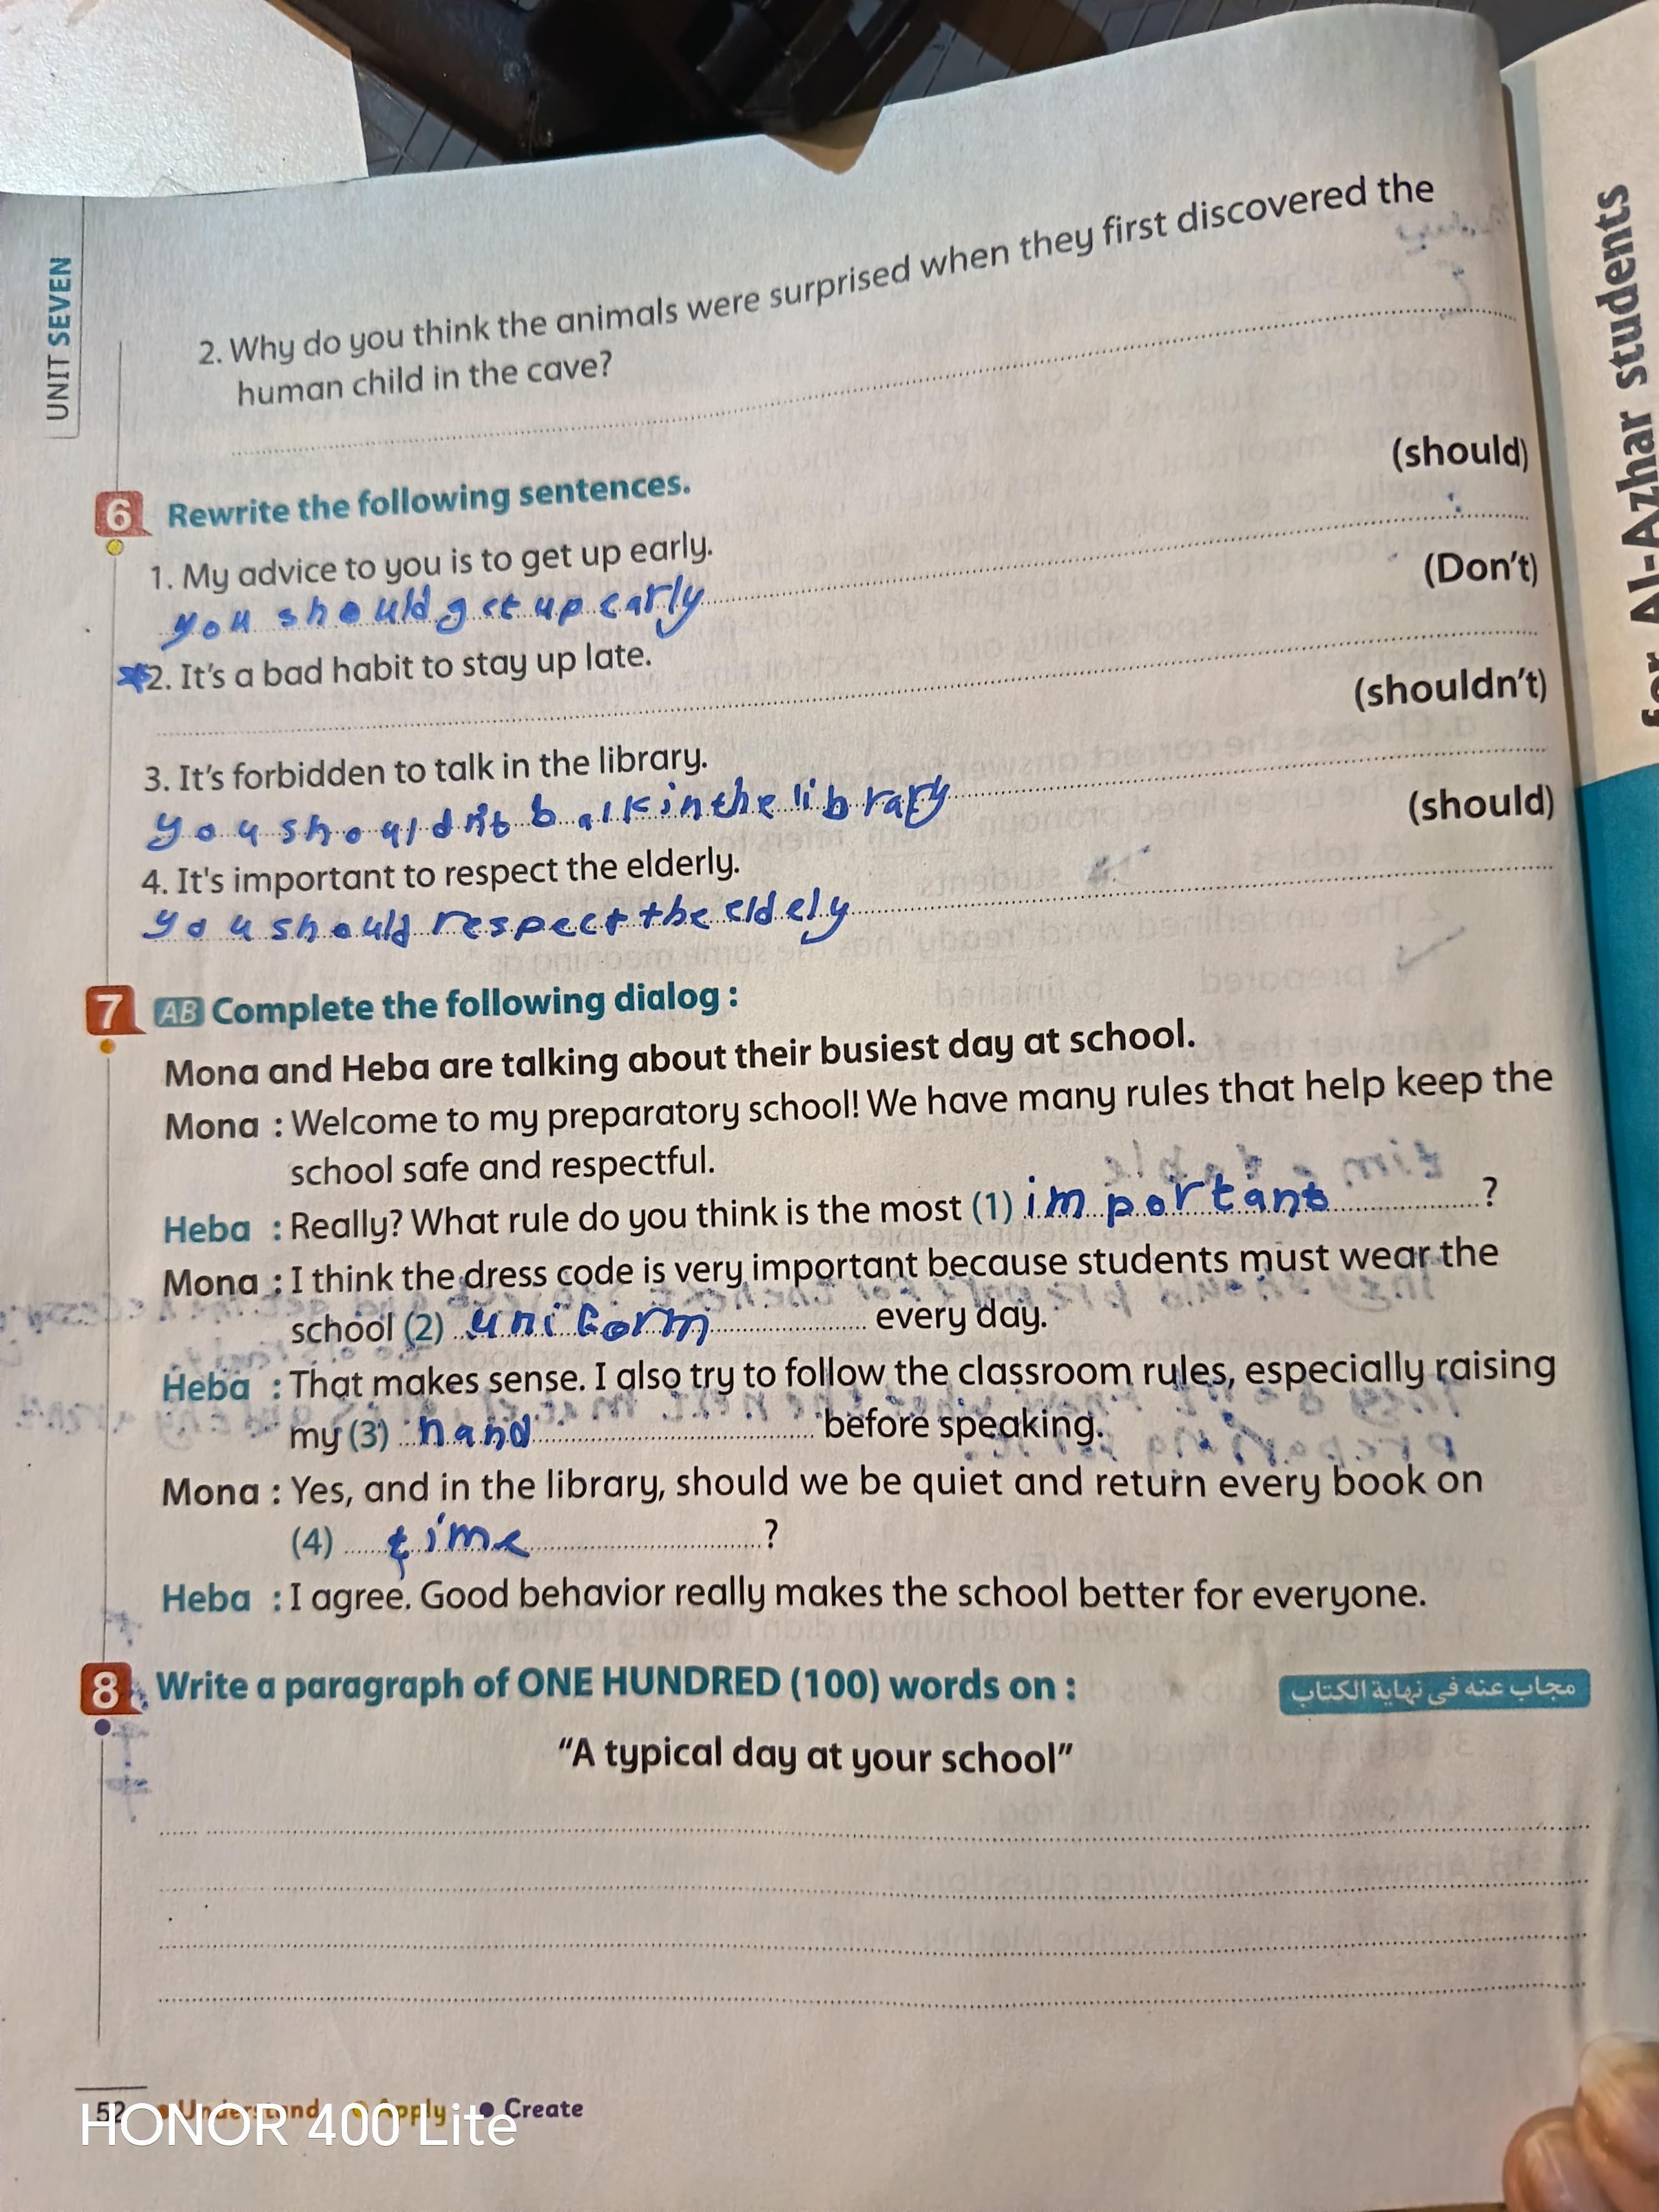 UNIT SEVEN
2. Why do you think the animals were surprised when they first discovered the
human child in the cave?
6 Rewrite the following sentences.
1. My advice to you is to get up early. (should)
you should get up early
2. It's a bad habit to stay up late. (Don't)
3. It's forbidden to talk in the library. (shouldn't)
you shouldn't talk in the library
4. It's important to respect the elderly. (should)
you should respect the eldely
7 AB Complete the following dialog :
Mona and Heba are talking about their busiest day at school.
Mona : Welcome to my preparatory school! We have many rules that help keep the
school safe and respectful.
Heba : Really? What rule do you think is the most (1) important ?
Mona : I think the dress code is very important because students must wear the
school (2) uniform every day.
Heba : That makes sense. I also try to follow the classroom rules, especially raising
my (3) hand before speaking.
Mona : Yes, and in the library, should we be quiet and return every book on
(4) time ?
Heba : I agree. Good behavior really makes the school better for everyone.
8 Write a paragraph of ONE HUNDRED (100) words on :
مجاب عنه في نهاية الكتاب
"A typical day at your school"
52 Understand Apply Create
HONOR 400 Lite
for Al-Azhar students